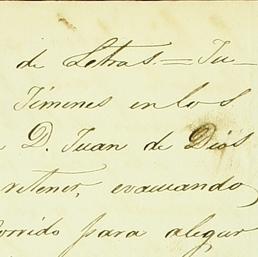 de Letras.=Ju-
Jimenes en los
D. Juan de Dios
retener, evacuando
corrido para alegar